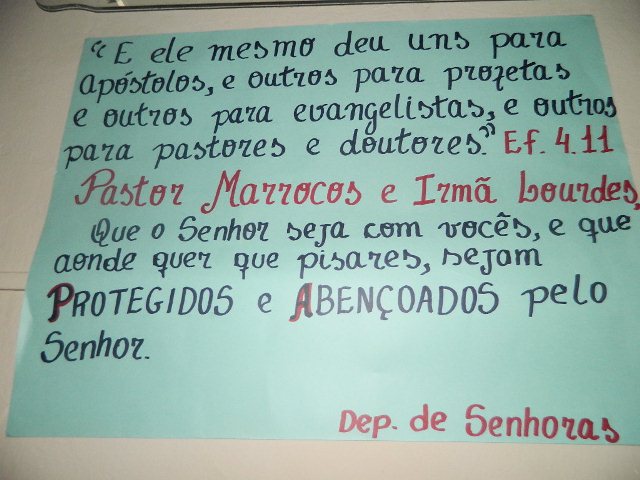 “E ele mesmo deu uns para
apóstolos, e outros para profetas
e outros para evangelistas, e outros
para pastores e doutores.” Ef. 4.11
Pastor Marrocos e Irmã Lourdes,
Que o Senhor seja com vocês, e que
aonde quer que pisares, sejam
PROTEGIDOS e ABENÇOADOS pelo
Senhor.
Dep. de Senhoras